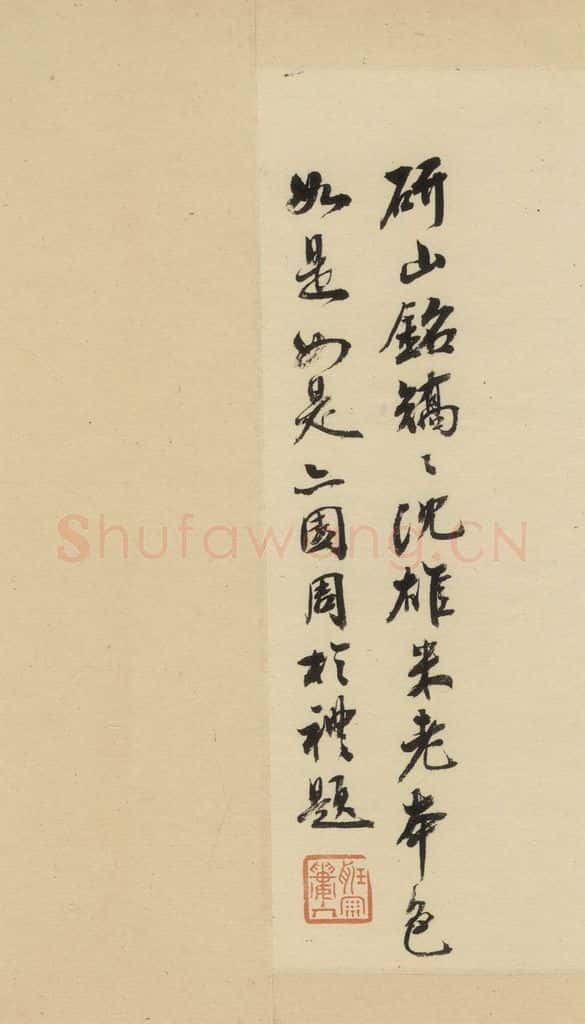 研山銘矯〻沈雄米老本色
如是如是亦園周於禮題
Shufawang.CN